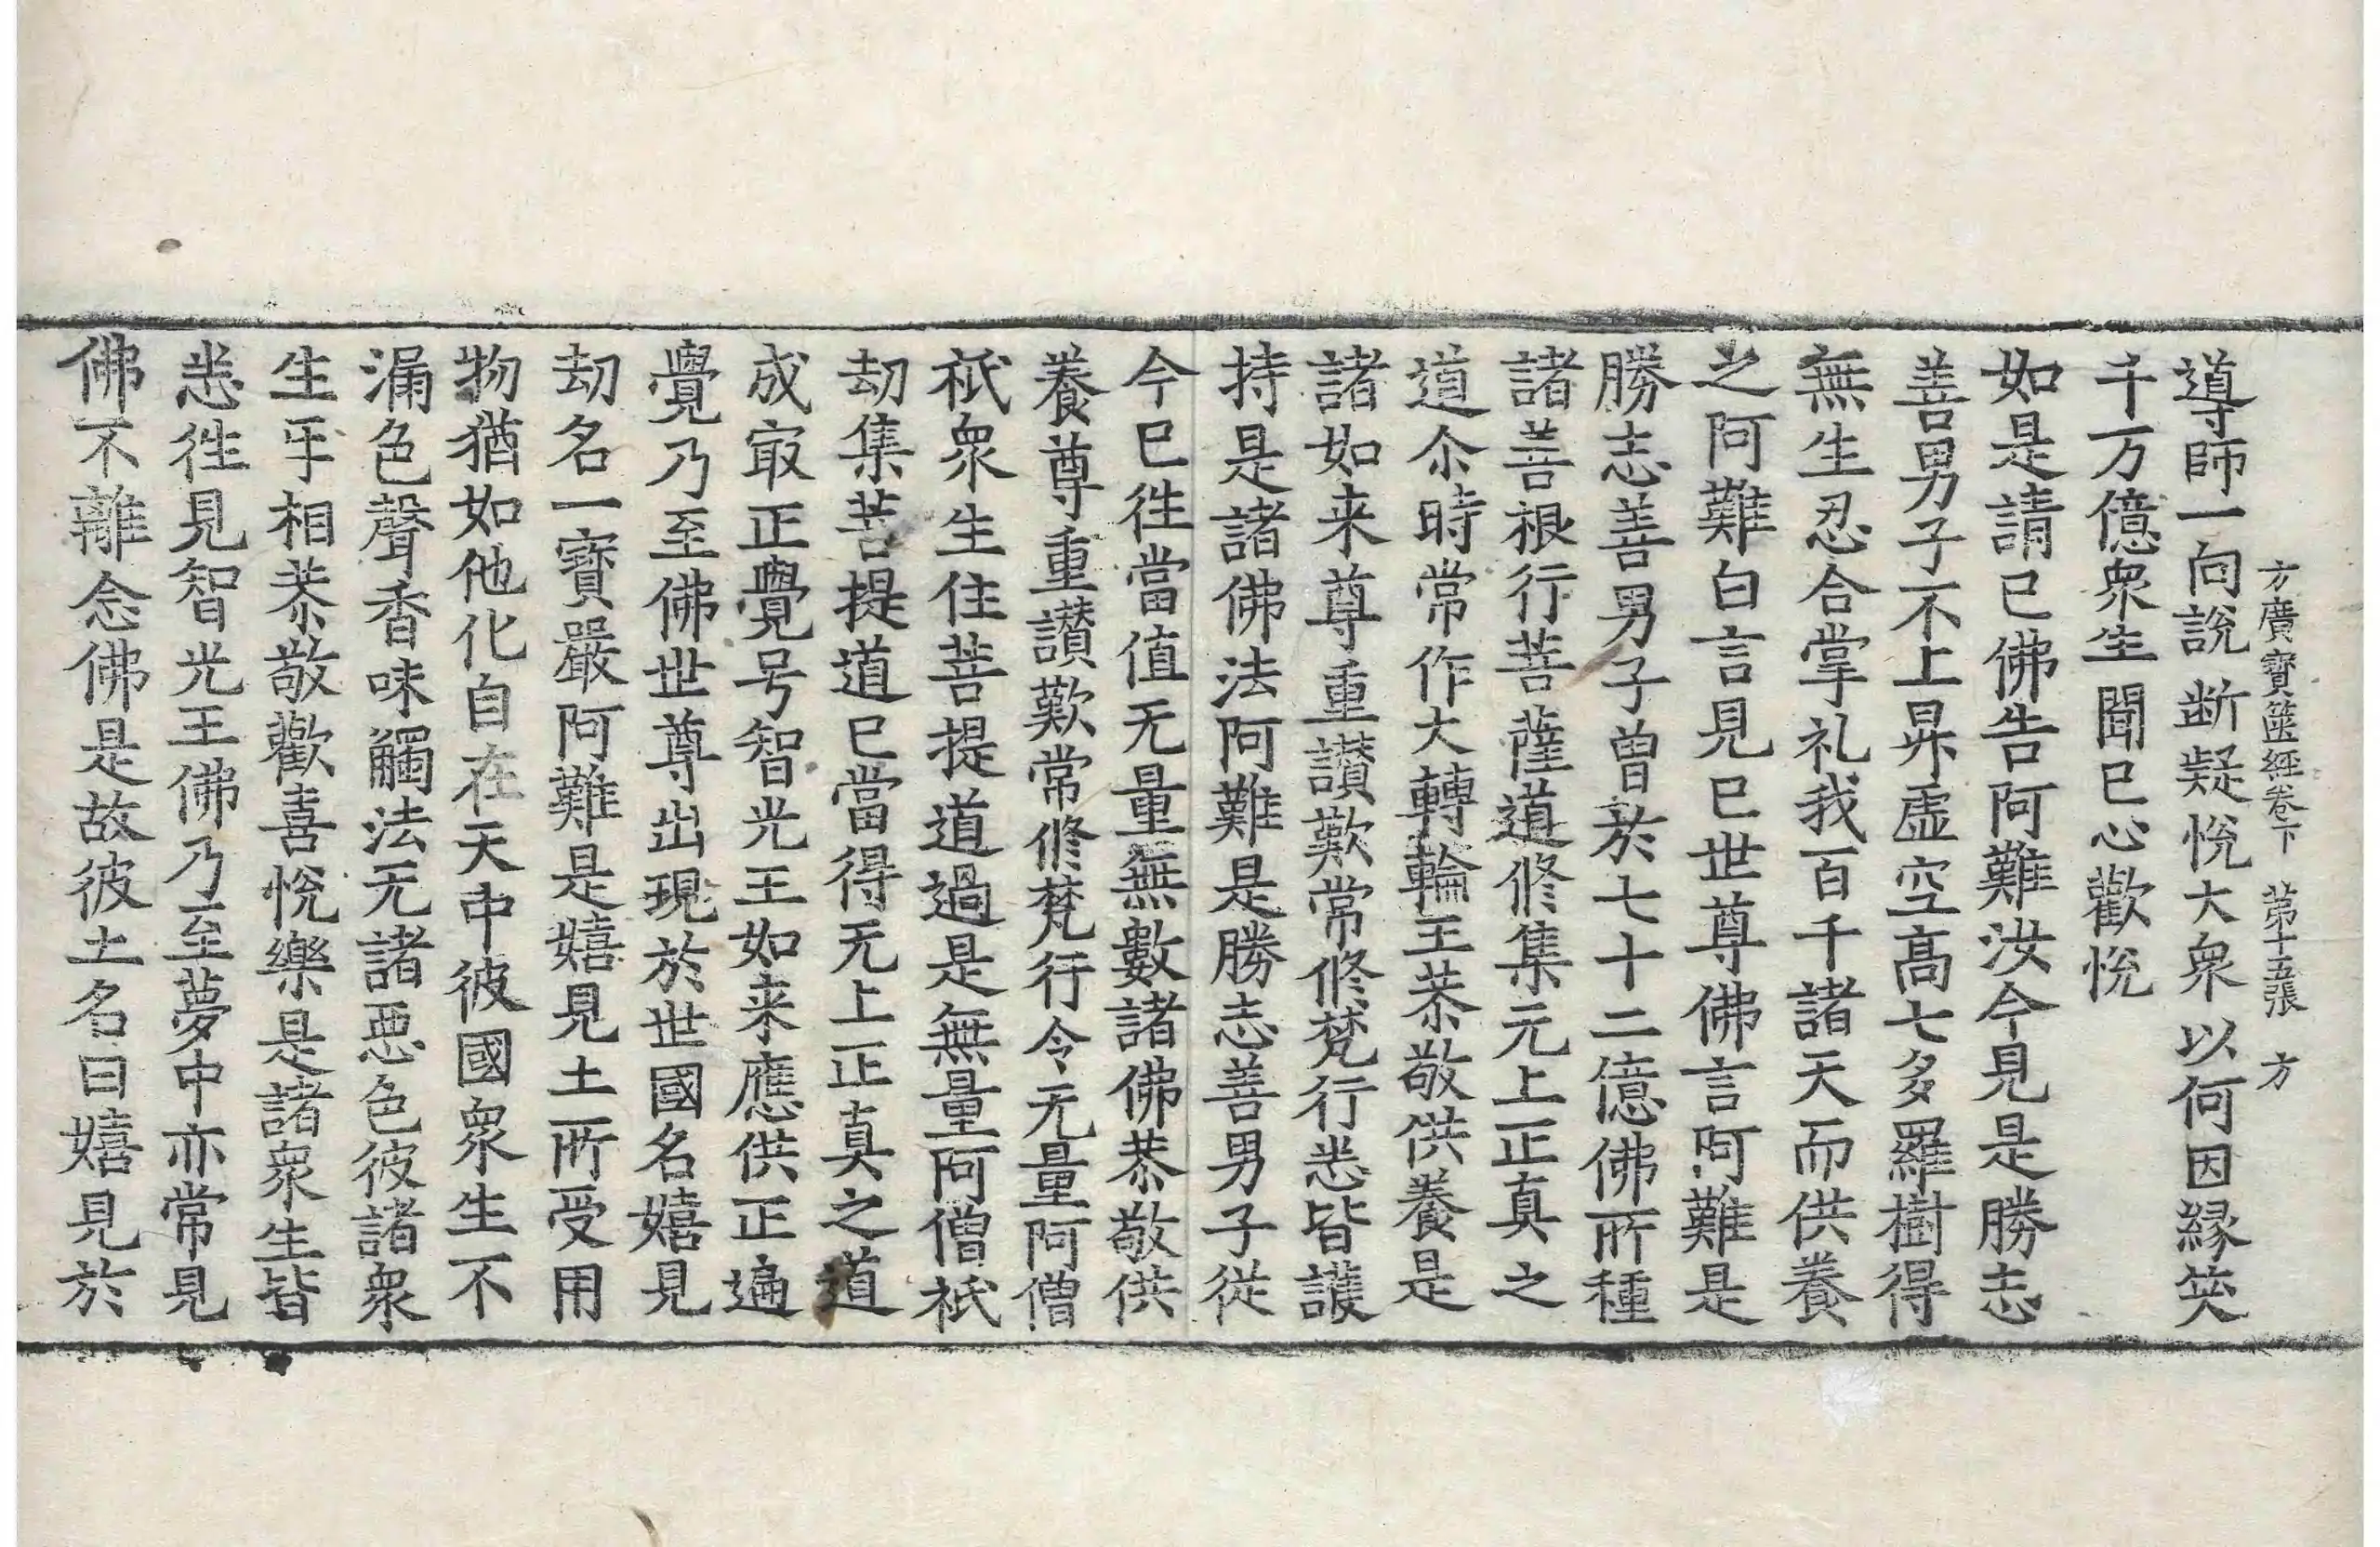 方廣寶篋經卷下　第十五張　方
導師一向說断疑悅大衆以何因縁笑
千万億衆生聞已心歡悅
如是請已佛告阿難汝今見是勝志
善男子不上昇虛空高七多羅樹得
無生忍合掌礼我百千諸天而供養
之阿難白言見已世尊佛言阿難是
勝志善男子曾於七十二億佛所種
諸善根行菩薩道修集无上正真之
道尒時常作大轉輪王恭敬供養是
諸如来尊重讃歎常修梵行悉皆護
持是諸佛法阿難是勝志善男子従
今已往當值无量無數諸佛恭敬供
養尊重讃歎常修梵行令无量阿僧
祇衆生住菩提道過是無量阿僧祇
劫集菩提道已當得无上正真之道
成㝡正覺号智光王如来應供正遍
覺乃至佛世尊出現於世國名嬉見
劫名一寶嚴阿難是嬉見土所受用
物猶如他化自在天中彼國衆生不
漏色聲香味觸法无諸惡色彼諸衆
生㸦相恭敬歡喜悅樂是諸衆生皆
悉往見智光王佛乃至夢中亦常見
佛不離念佛是故彼土名曰嬉見於